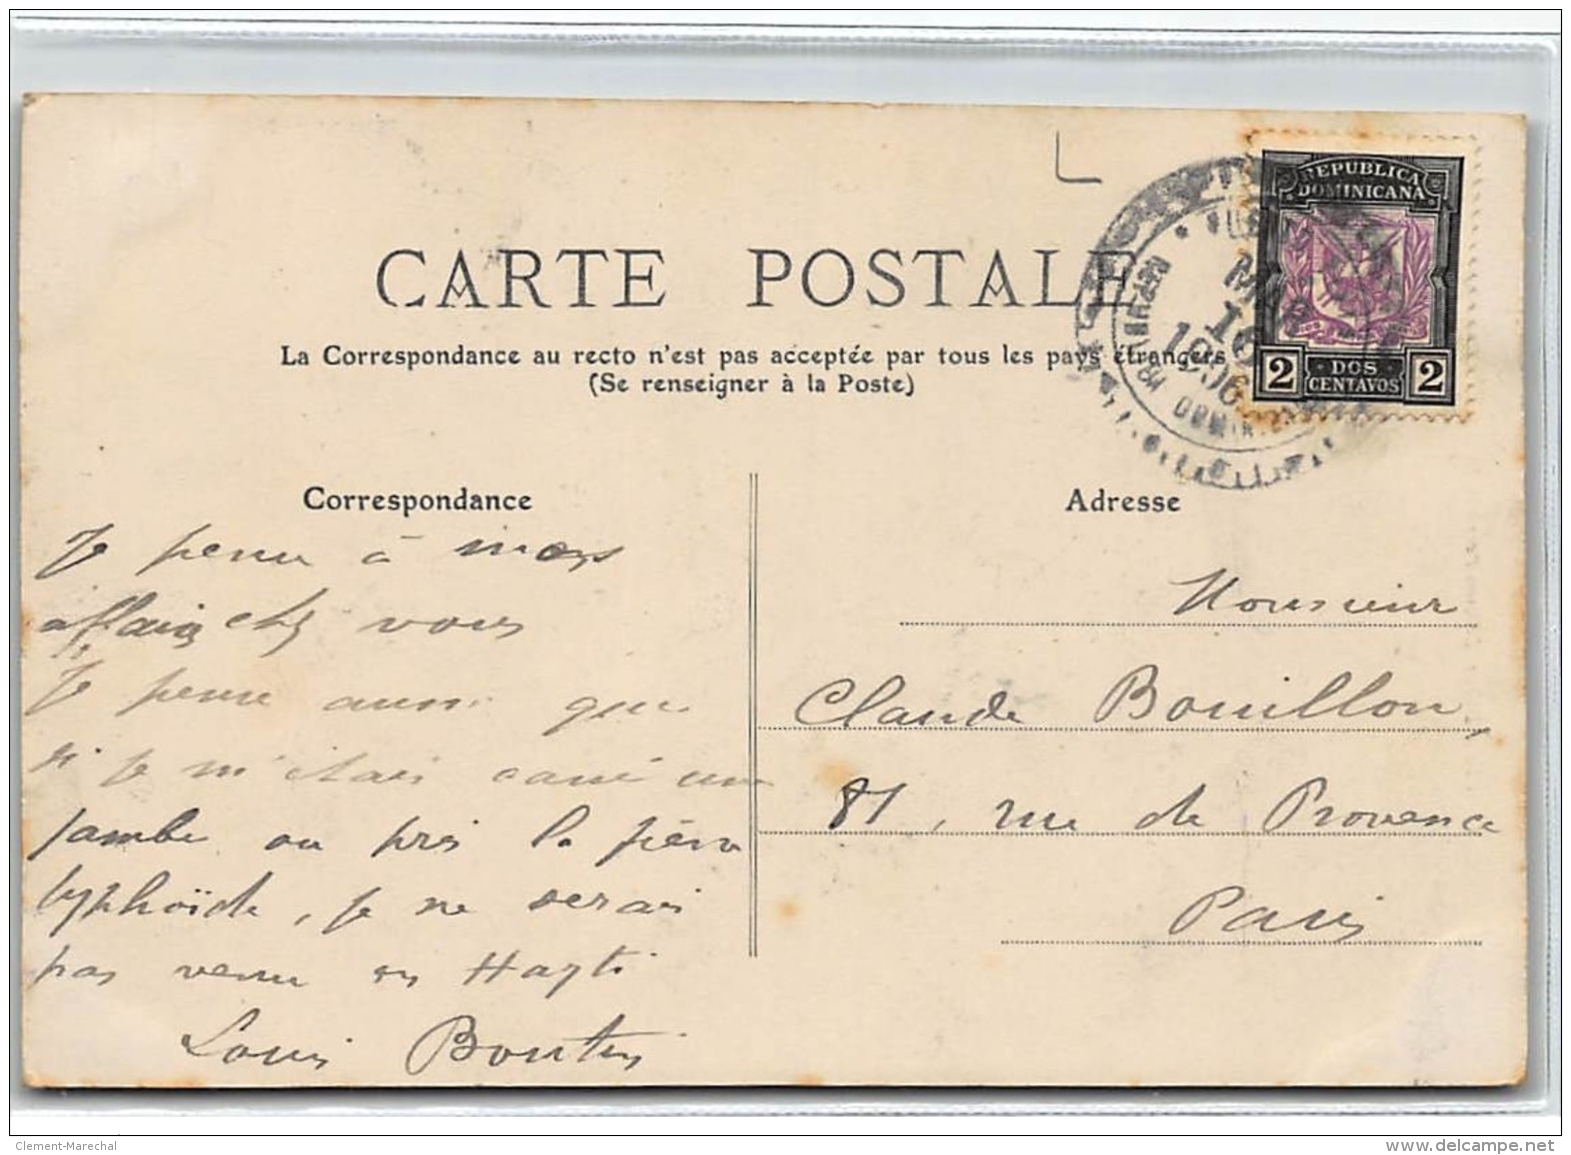 REPUBLICA
DOMINICANA
2 DOS CENTAVOS 2
MAR
16
1906
CARTE POSTALE
La Correspondance au recto n'est pas acceptée par tous les pays étrangers
(Se renseigner à la Poste)
Correspondance
Je pense à mes
affaires chez vous
Je pense aussi que
si je m'étais cassé une
jambe ou pris la fièvre
typhoïde, je ne serais
pas venu en Hayti
Louis
Adresse
Monsieur
Claude Bouillon,
81, rue de Provence
Paris
Clement-Marechal
www.delcampe.net